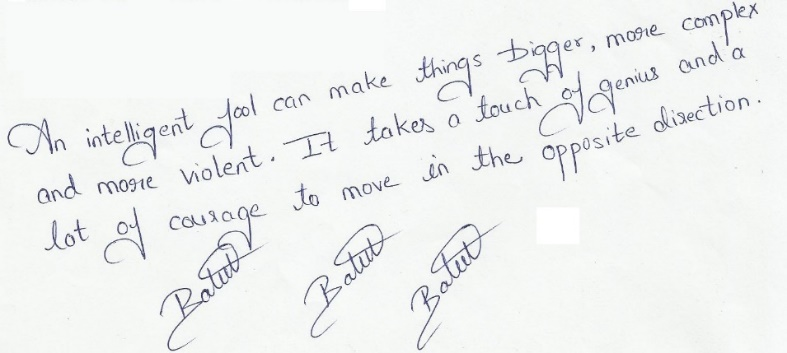 An intelligent fool can make things bigger, more complex
and more violent. It takes a touch of genius and a
lot of courage to move in the opposite direction.